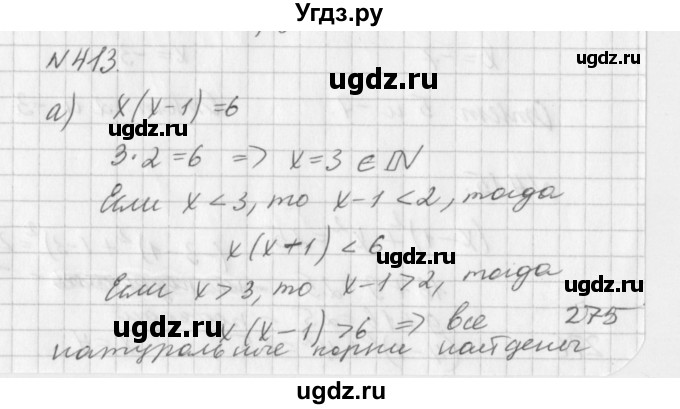 Угдз.ру
N 413.
ugdz.ru
ugdz.ru
а) x(x-1) = 6
ugdz.ru
3·2 = 6 => x = 3 ∈ ℕ
Если x < 3, то x-1 < 2, тогда
x(x+1) < 6
ugdz.ru
ugdz.ru
Если x > 3, то x-1 > 2, тогда
ugdz.ru
x(x-1) > 6 => все 275
натуральные корни найдены
ugdz.ru